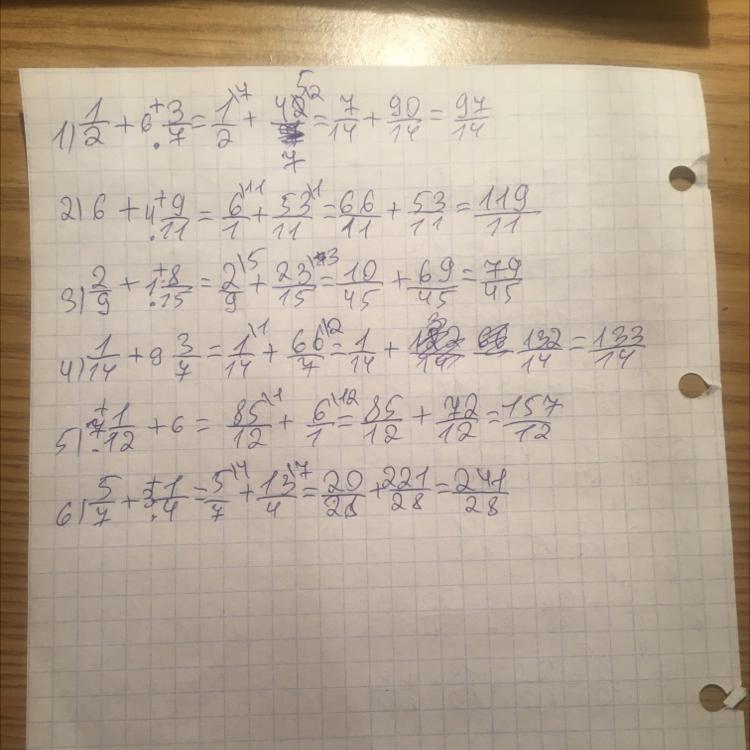 1) 1/2 + 6 3/7 = 1/2 \7 + 45/7 \2 = 7/14 + 90/14 = 97/14
2) 6 + 4 9/11 = 6/1 \11 + 53/11 \1 = 66/11 + 53/11 = 119/11
3) 2/9 + 1 8/15 = 2/9 \5 + 23/15 \3 = 10/45 + 69/45 = 79/45
4) 1/14 + 9 3/7 = 1/14 \1 + 66/7 \2 = 1/14 + 132/14 = 133/14
5) 7 1/12 + 6 = 85/12 \1 + 6/1 \12 = 85/12 + 72/12 = 157/12
6) 5/7 + 3 1/4 = 5/7 \4 + 13/4 \7 = 20/28 + 221/28 = 241/28